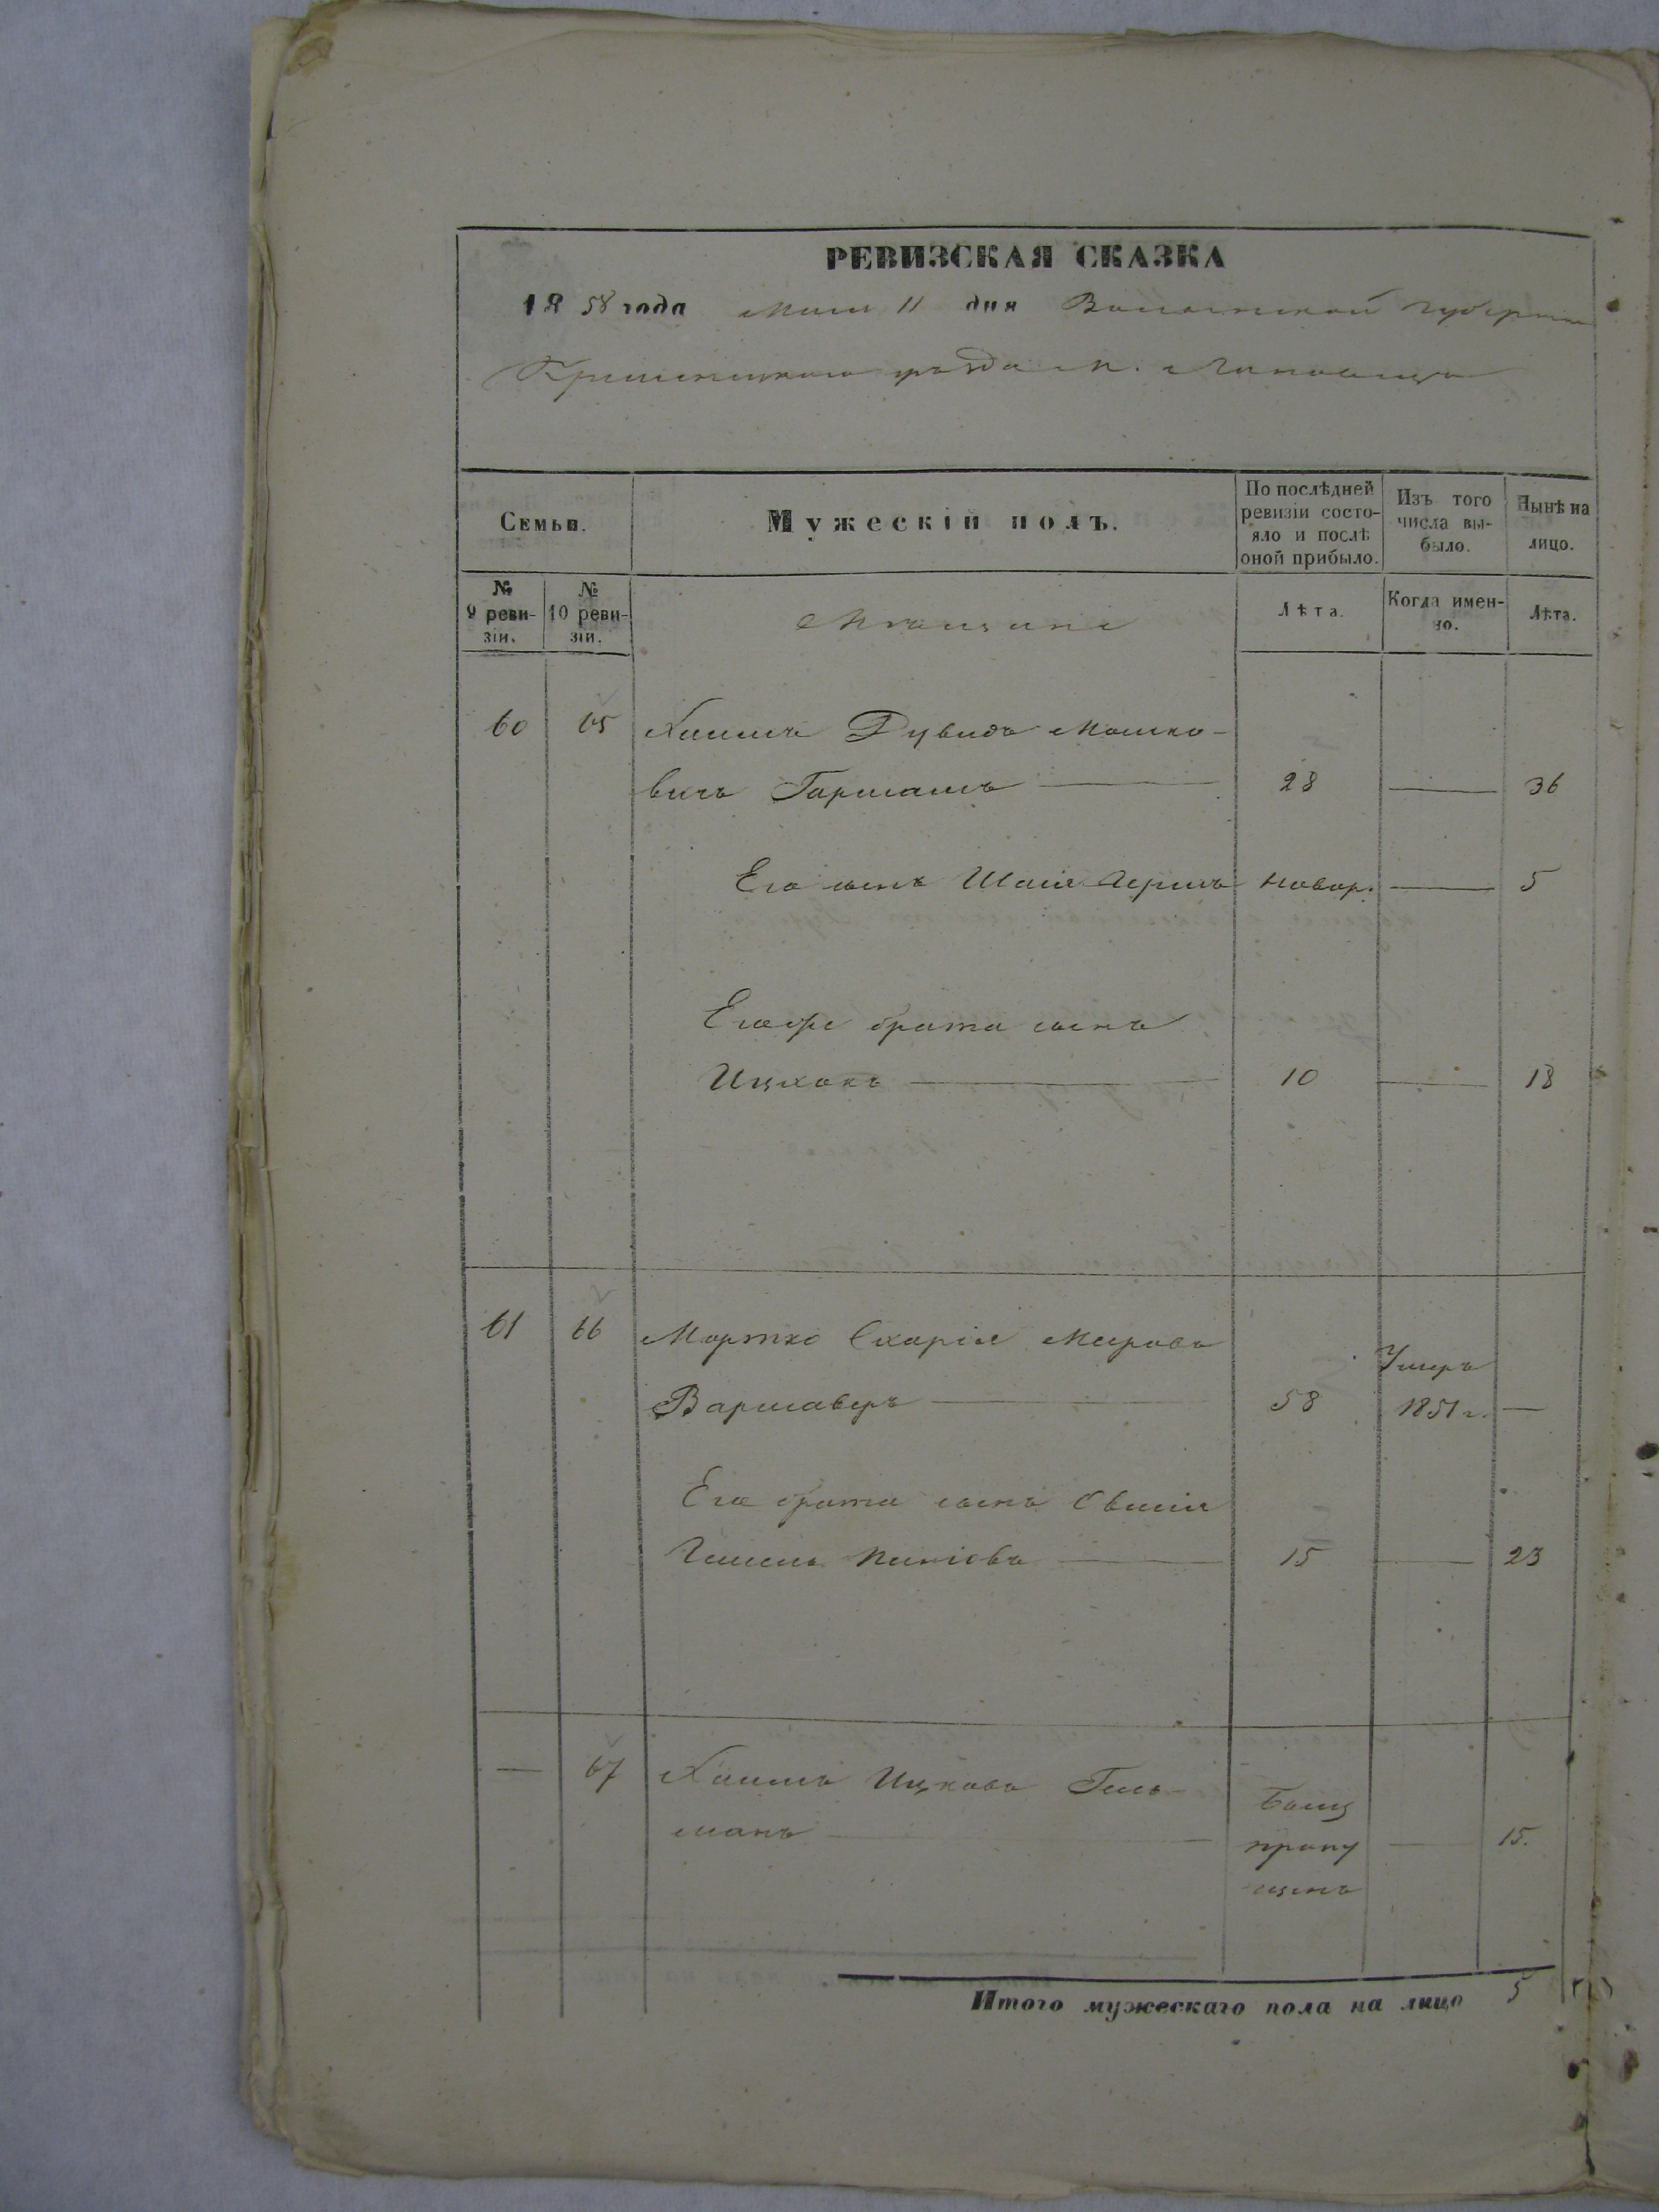 РЕВИЗСКАЯ СКАЗКА
1858 года Маія 11 дня Волынской губерніи
Кременецкаго уѣзда м. Лановецъ
Семьи.
Мужескій полъ.
По послѣдней ревизіи состо-яло и послѣ оной прибыло.
Изъ того числа вы-было.
Нынѣ на лицо.
№ 9 реви-зіи.
№ 10 реви-зіи.
Мѣщане
Лѣта.
Когда имен-но.
Лѣта.
60 65 Хаимъ Дувидъ Мошко-
вичъ 28 — 36
Его сынъ Шаія Берко новор. — 5
Егоже брата сынъ
Ицхокъ — 10 — 18
61 66 Мортко Схарія Меировъ Умеръ
Варшаверъ — 58 1851 г. —
Его брата сынъ Овшія
15 — 23
— 67 Хаимъ Ицковъ Гель-
манъ — Былъ пропу щенъ — 15.
Итого мужескаго пола на лицо 5